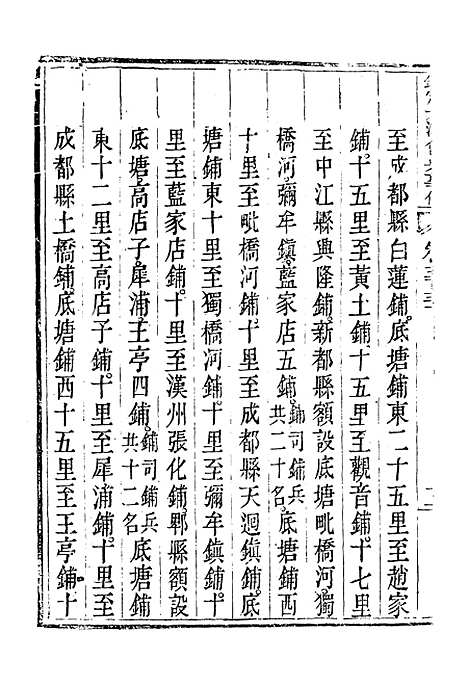 至成都縣白蓮鋪底塘鋪東二十五里至趙家
鋪十五里至黃土鋪十五里至觀音鋪十七里
至中江縣興隆鋪新都縣額設底塘毗橋河獨
橋河彌牟鎮藍家店五鋪鋪司鋪兵共二十名底塘鋪西
十里至毗橋河鋪十里至成都縣天迴鎮鋪底
塘鋪東十里至獨橋河鋪十里至彌牟鎮鋪十
里至藍家店鋪十里至漢州張化鋪郫縣額設
底塘高店子犀浦王亭四鋪鋪司鋪兵共十二名底塘鋪
東十二里至高店子鋪十里至犀浦鋪十里至
成都縣土橋鋪底塘鋪西十五里至王亭鋪十